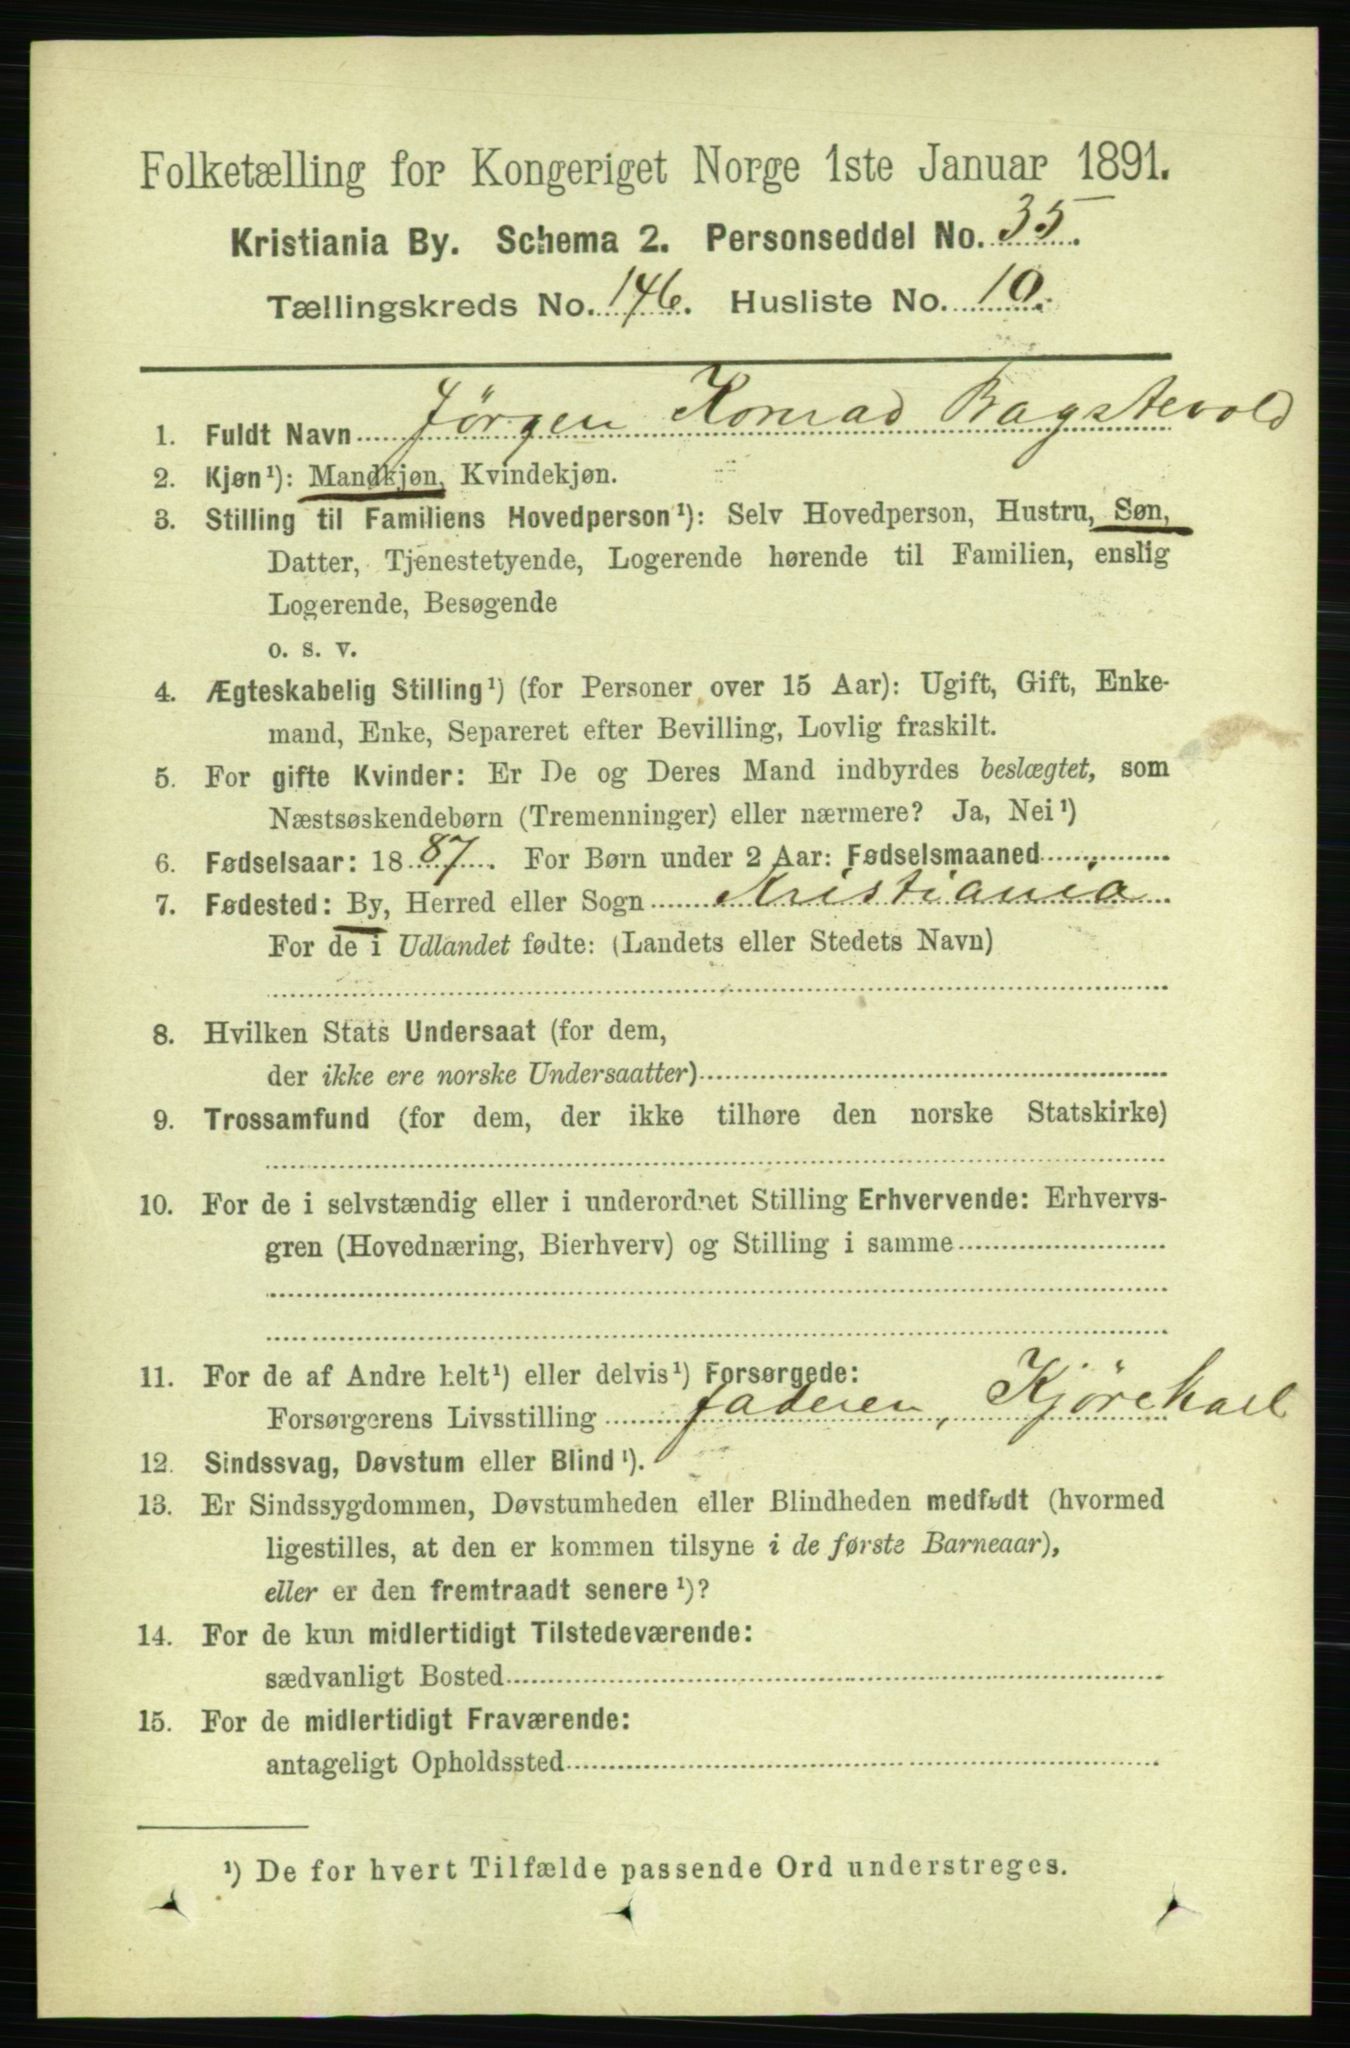 Folketælling for Kongeriget Norge 1ste Januar 1891.
Kristiania By. Schema 2. Personseddel No. 35.
Tællingskreds No. 146. Husliste No. 10.
1. Fuldt Navn Jørgen Konrad Bagstevold
2. Kjøn¹): Mandkjøn, Kvindekjøn.
3. Stilling til Familiens Hovedperson¹): Selv Hovedperson, Hustru, Søn,
Datter, Tjenestetyende, Logerende hørende til Familien, enslig
Logerende, Besøgende
o. s. v.
4. Ægteskabelig Stilling¹) (for Personer over 15 Aar): Ugift, Gift, Enke-
mand, Enke, Separeret efter Bevilling, Lovlig fraskilt.
5. For gifte Kvinder: Er De og Deres Mand indbyrdes beslægtet, som
Næstsøskendebørn (Tremenninger) eller nærmere? Ja, Nei¹)
6. Fødselsaar: 1887. For Børn under 2 Aar: Fødselsmaaned
7. Fødested: By, Herred eller Sogn Kristiania
For de i Udlandet fødte: (Landets eller Stedets Navn)
8. Hvilken Stats Undersaat (for dem,
der ikke ere norske Undersaatter)
9. Trossamfund (for dem, der ikke tilhøre den norske Statskirke)
10. For de i selvstændig eller i underordnet Stilling Erhvervende: Erhvervs-
gren (Hovednæring, Bierhverv) og Stilling i samme
11. For de af Andre helt¹) eller delvis¹) Forsørgede:
Forsørgerens Livsstilling faderen, Kjørekarl
12. Sindssvag, Døvstum eller Blind¹).
13. Er Sindssygdommen, Døvstumheden eller Blindheden medfødt (hvormed
ligestilles, at den er kommen tilsyne i de første Barneaar),
eller er den fremtraadt senere¹)?
14. For de kun midlertidigt Tilstedeværende:
sædvanligt Bosted
15. For de midlertidigt Fraværende:
antageligt Opholdssted
¹) De for hvert Tilfælde passende Ord understreges.